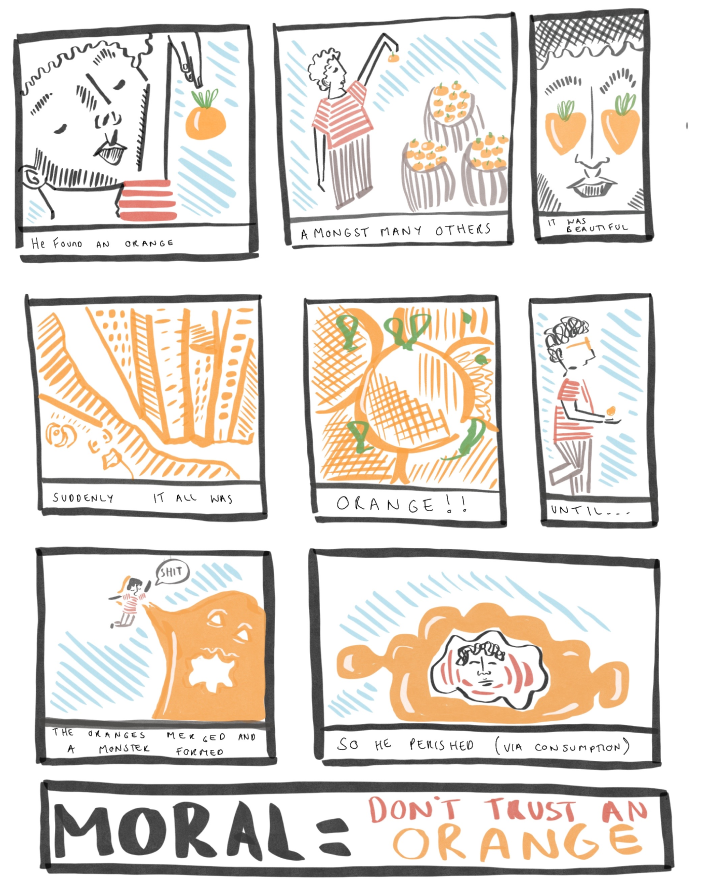 He FOUND AN ORANGE
AMONGST MANY OTHERS
IT WAS
BEAUTIFUL
SUDDENLY IT ALL WAS
ORANGE!!
UNTIL...
SHIT
THE ORANGES MERGED AND
A MONSTER FORMED
SO HE PERISHED (VIA CONSUMPTION)
MORAL = DON'T TRUST AN
ORANGE